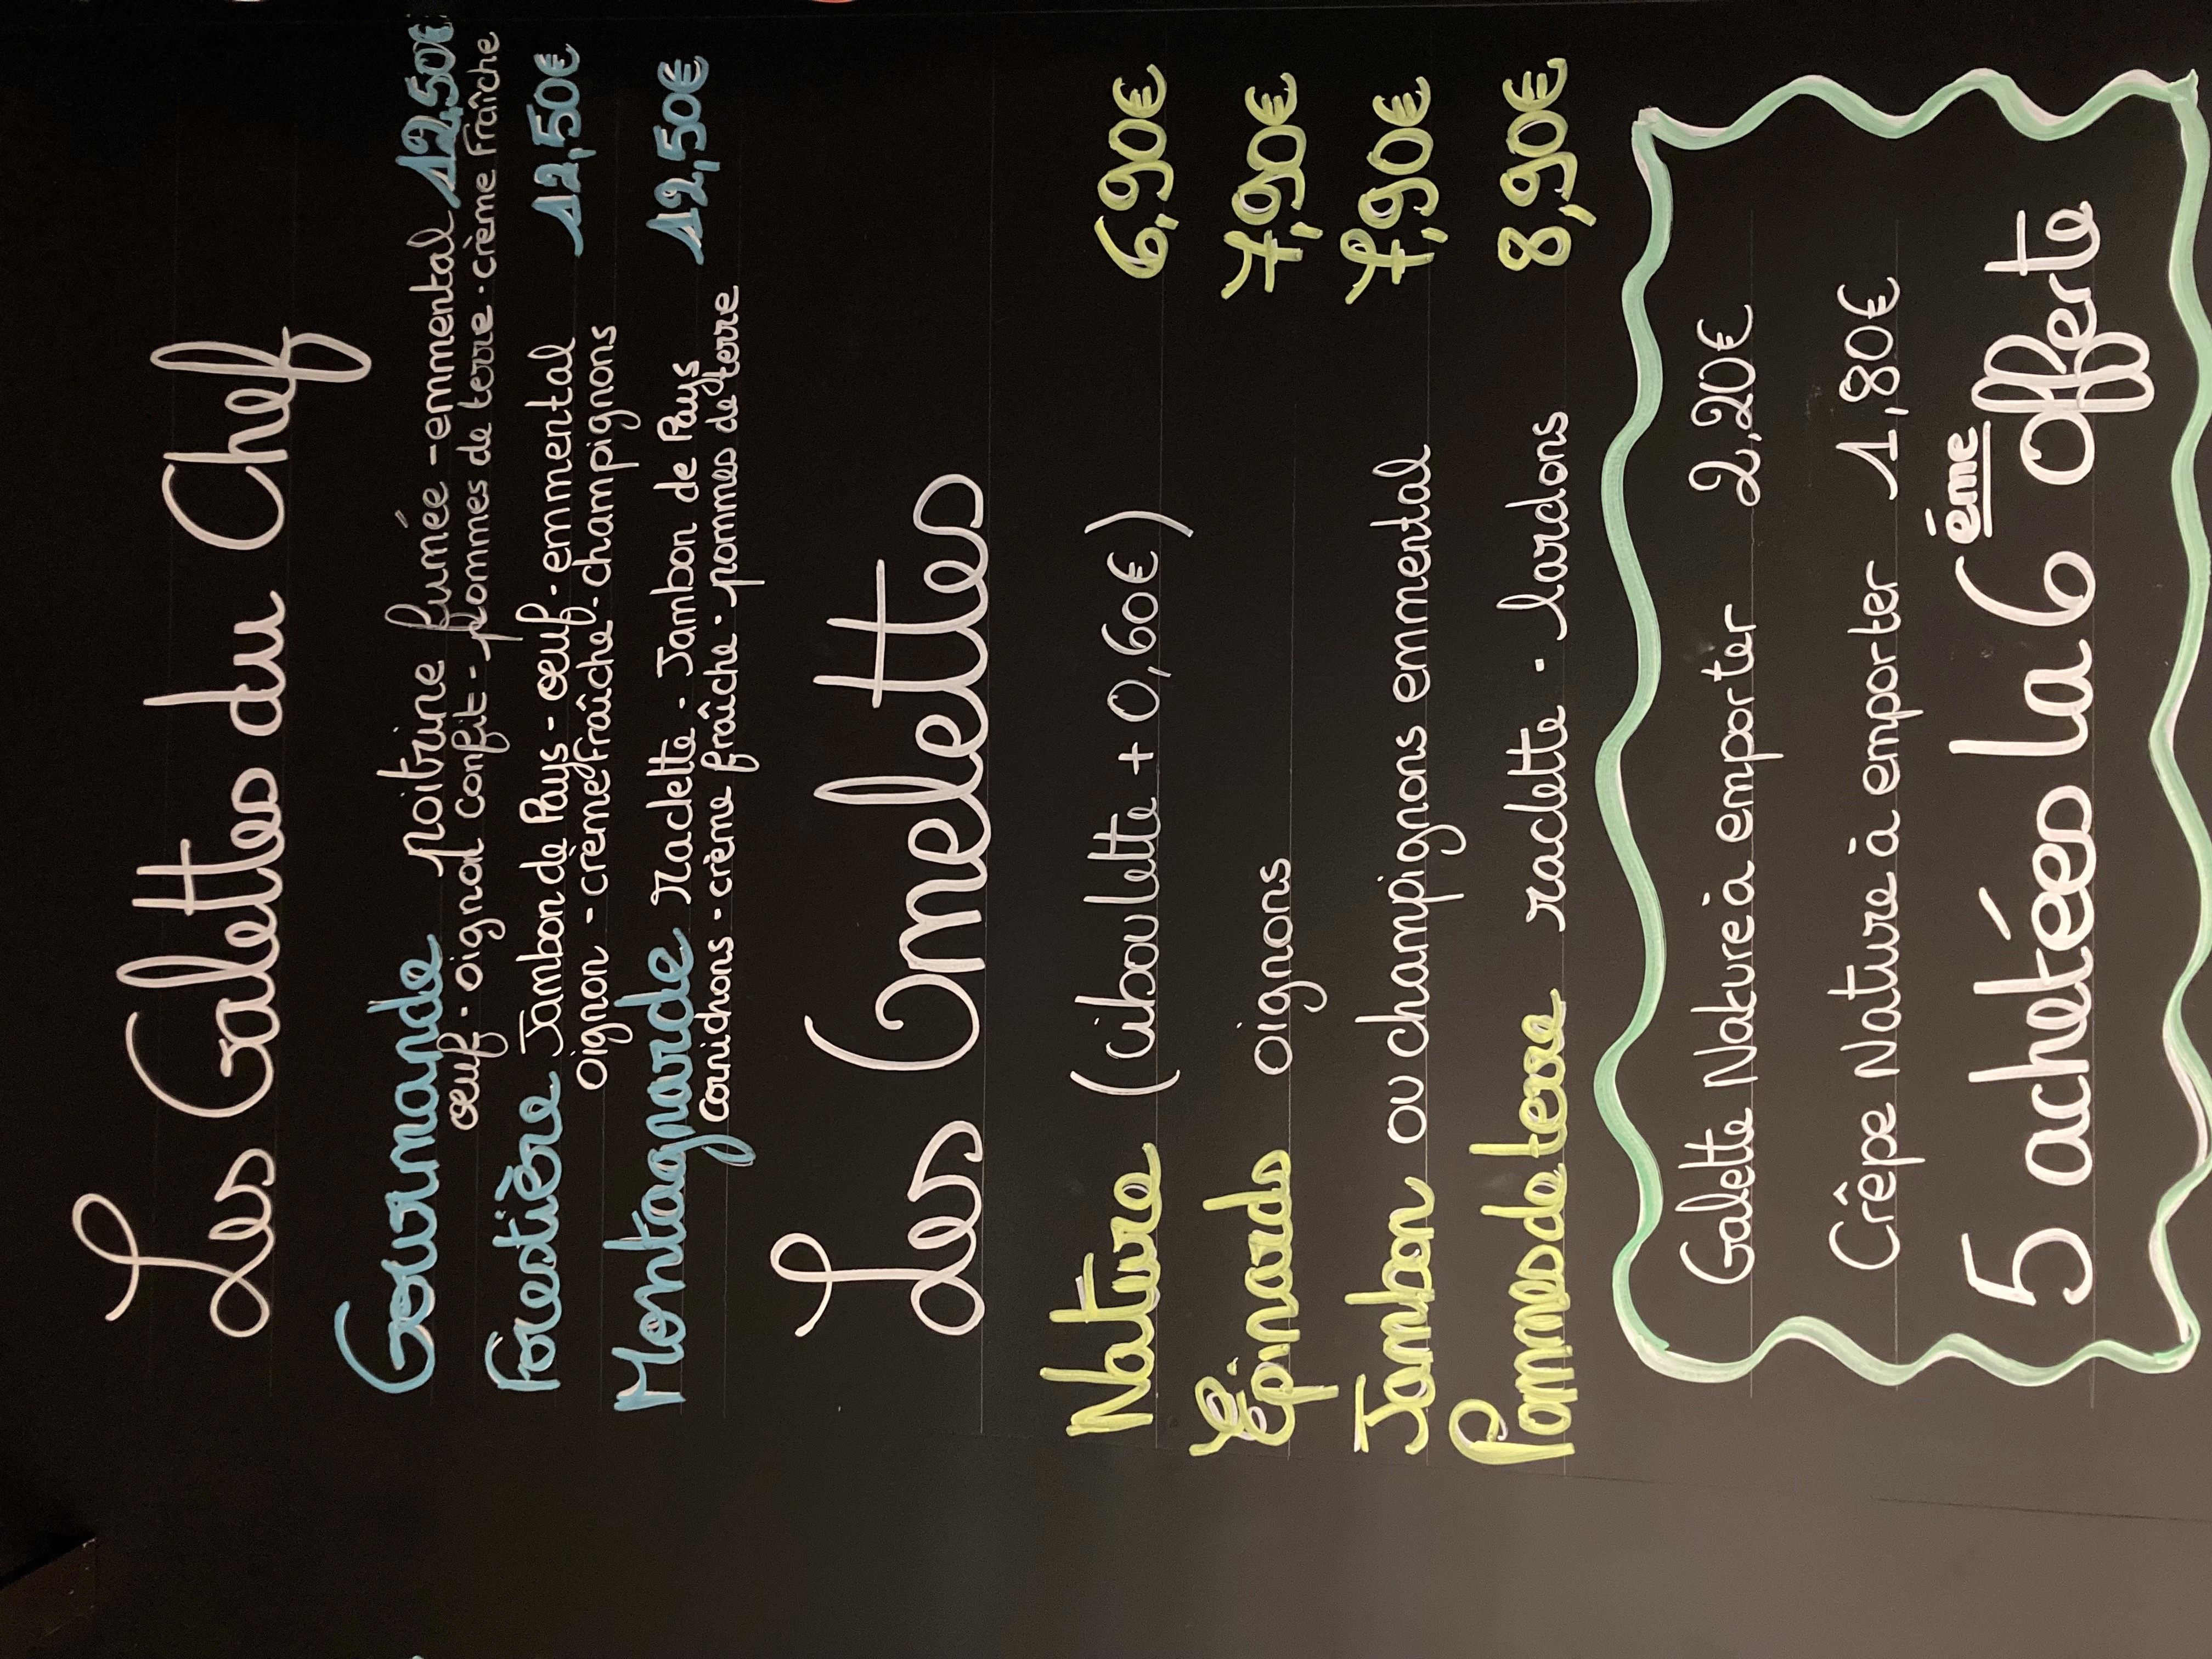 Les Galettes du Chef
Gourmande poitrine fumée - emmental 12,50€
œuf - oignon confit - pommes de terre - crème fraîche
Forestière Jambon de Pays - œuf - emmental 12,50€
oignon - crème fraîche - champignons
Montagnarde raclette - Jambon de Pays 12,50€
cornichons - crème fraîche - pommes de terre
Les Omelettes
Nature (ciboulette + 0,60€) 6,90€
Épinards oignons 7,90€
Jambon ou champignons emmental 7,90€
Pommes de terre raclette - lardons 8,90€
Galette Nature à emporter 2,20€
Crêpe Nature à emporter 1,80€
5 achetées la 6ème offerte